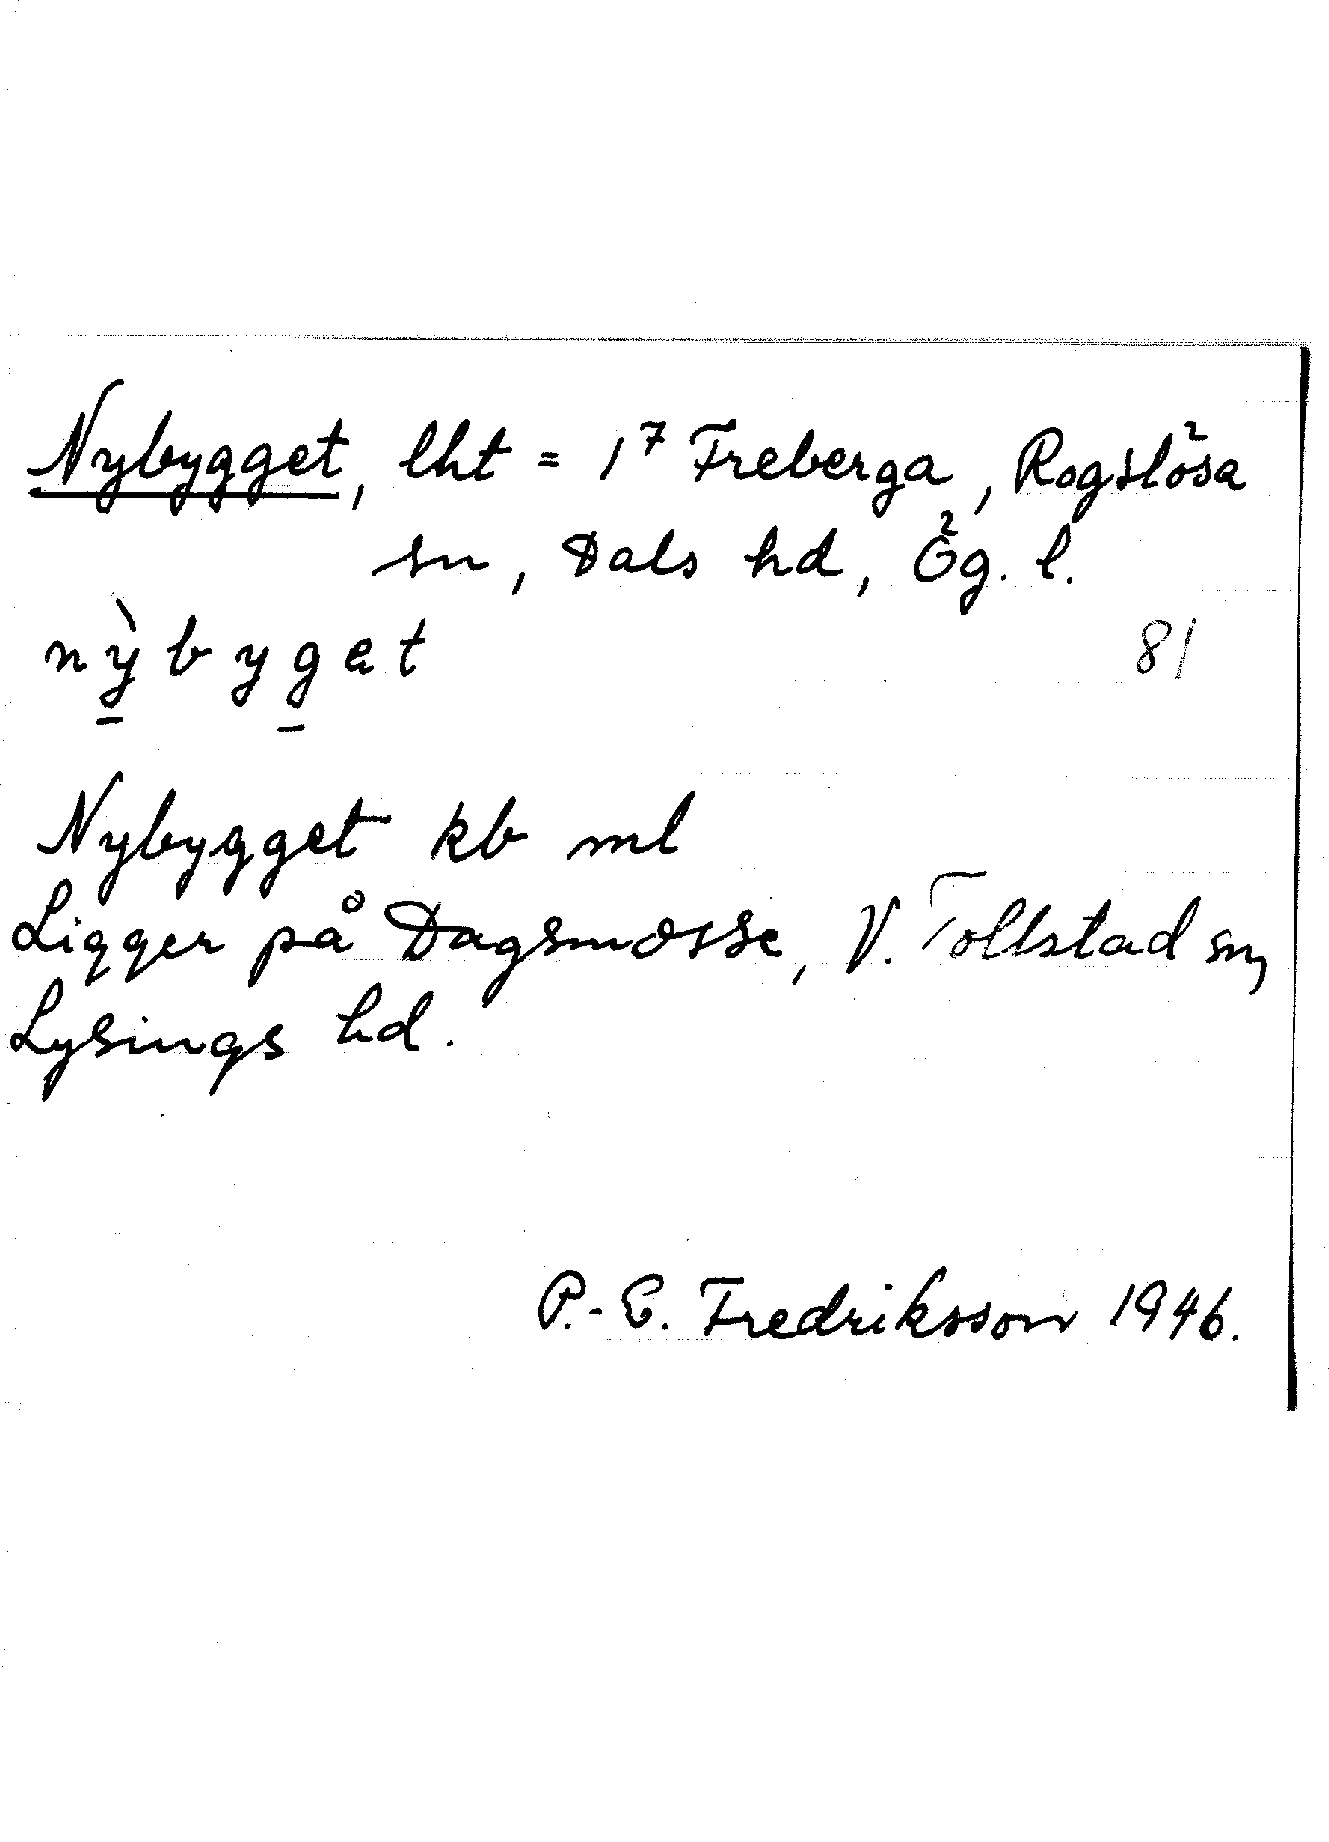 Nybygget, lht = 1⁷ Freberga, Rogslösa
sn, Dals hd, Ög. l.
nỳbyget 81
Nybygget kb ml
Ligger på Dagsmosse, V. Tollstad sn,
Lysings hd.
P.-E. Fredriksson 1946.